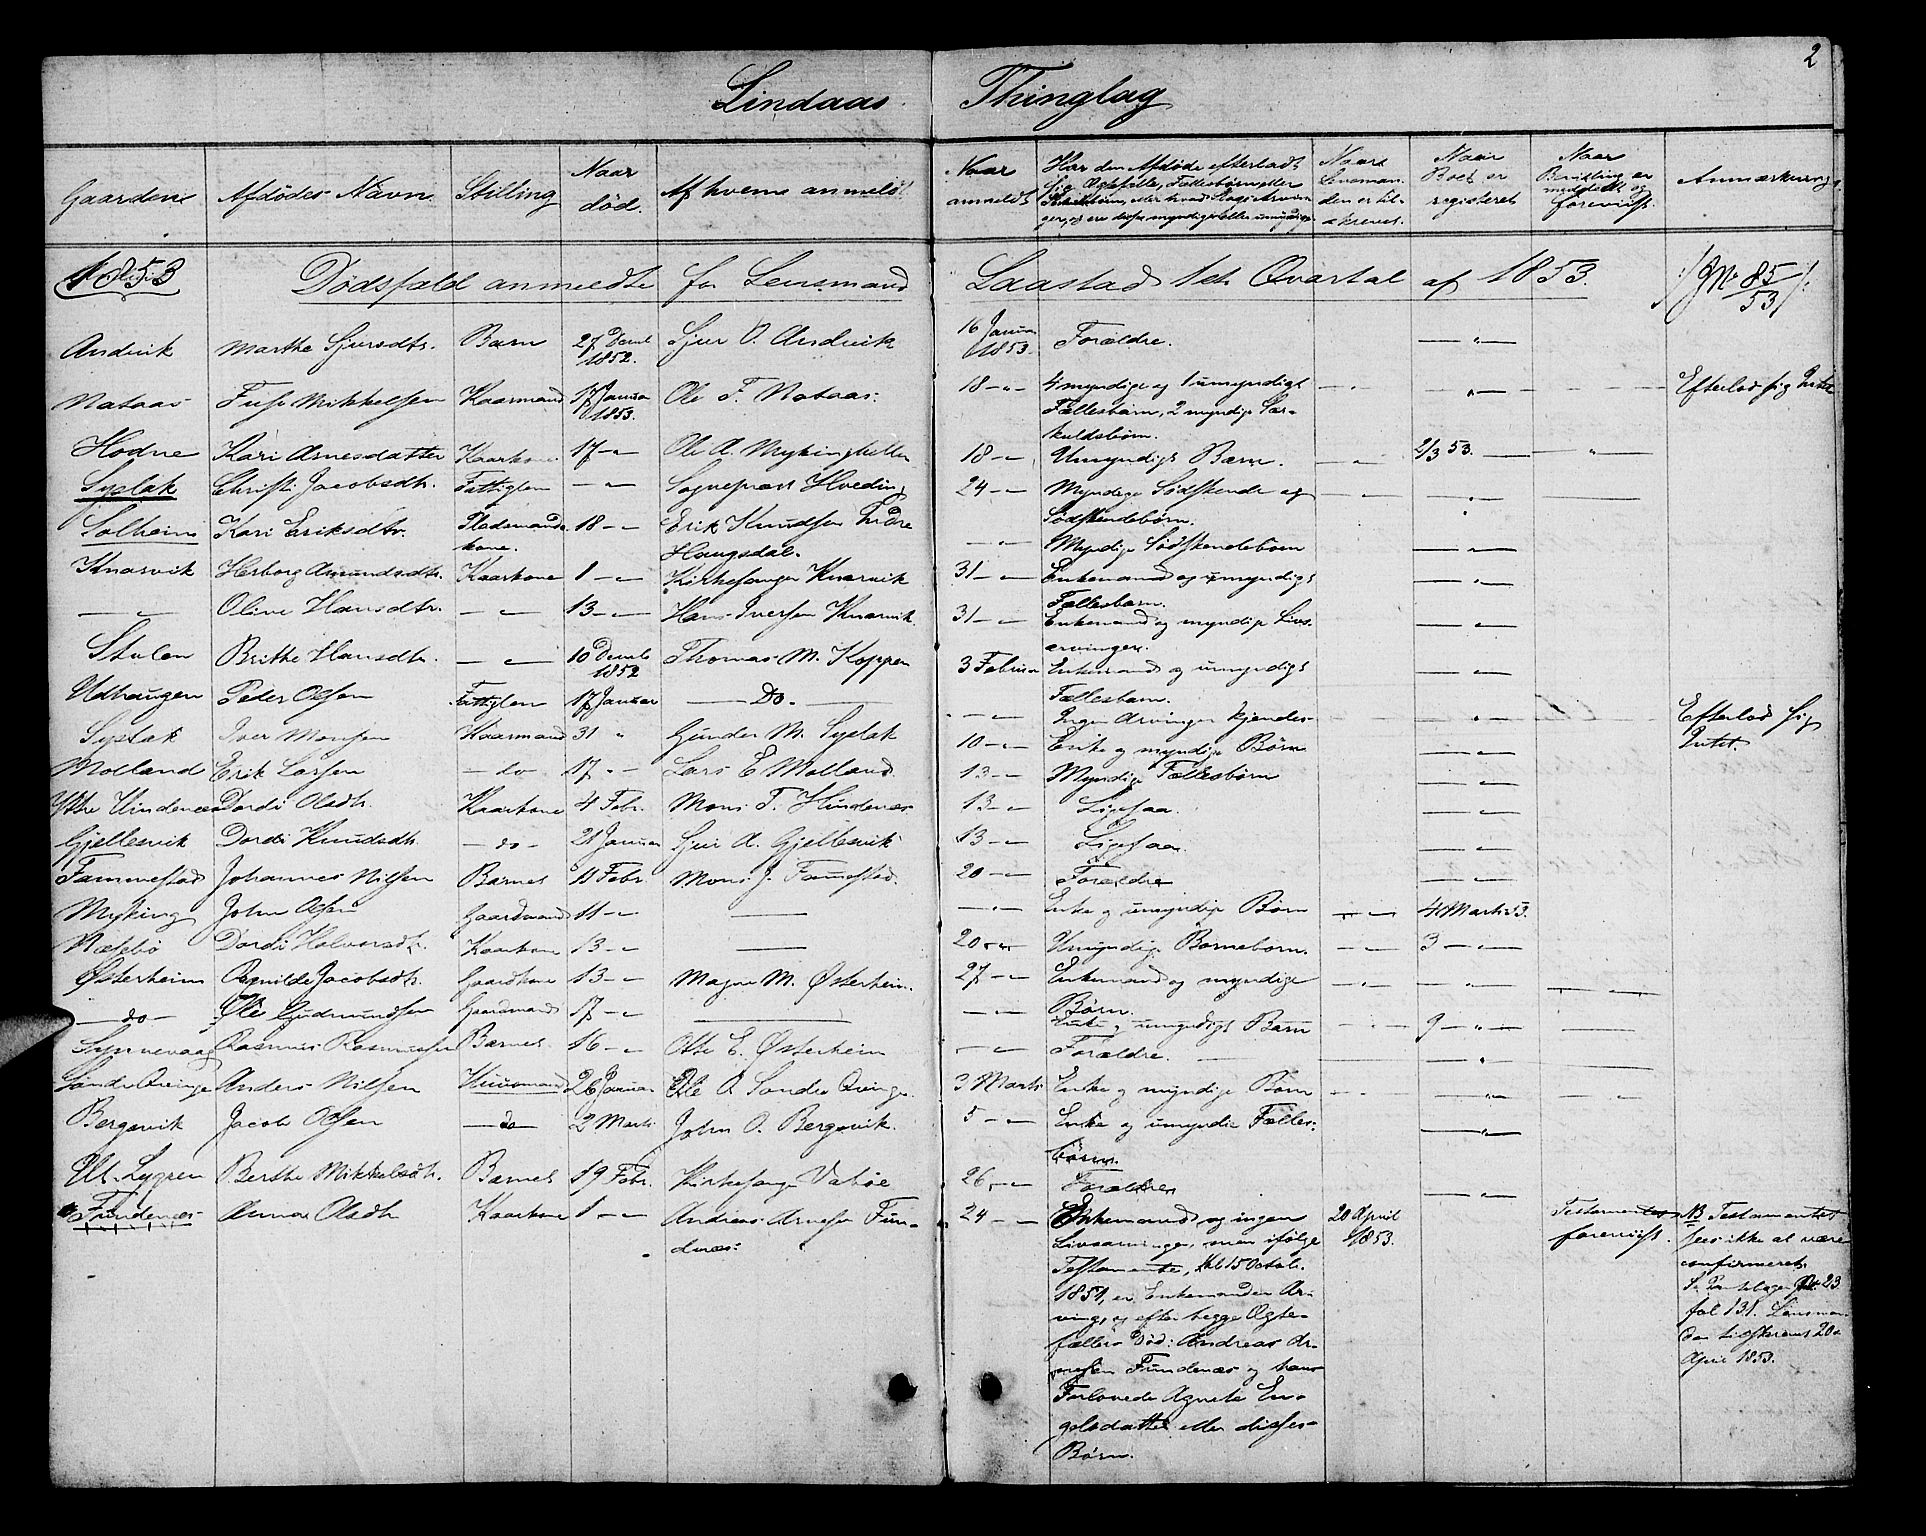 2
Lindaas Thinglag
Gaardens Afdødes Navn Stilling Naar død. Af hvem anmeldt Naar anmeldt Har den Afdøde efterladt sig Ægtefælle, Fællesbørn eller Særkuldbørn, eller hvad Slags Arvinger, og ere disse myndige eller umyndige Naar Lensmanden er tilskrevet. Naar Boet er registeret Naar Bevilling er meddelt og foreviist. Anmærkninger
1853 Dødsfald anmeldte for Lensmand Laastad 1ste Qvartal af 1853. /: JNo 85/53 :/
Andvik Marthe Sjursdtr. Barn 27 Decbr 1852. Sjur O. Andvik 16 Januar 1853. Forældre. — " —
Nataas Fuse Mikkelsen Kaarmand 17 Januar 1853. Ole F. Nataas. 18 - " - 4 myndige og 1 umyndigt Fællesbarn, 2 myndige Særkuldsbørn. — " — Efterlod sig Intet
Hodne Kari Arnesdatter Kaarkone 17 - " - Ole A. Mykinghellen 18 - " - Umyndigt Barn. - " - 2/3 53. — " —
Syslak Christi Jacobsdtr. Fattiglem - " - Sognepræst Hveding 24 - " - Myndige Sødskende og Sødskendebørn. - " - — " —
Solheim Kari Eriksdtr. Pladsmandskone. 18 - " - Erik Knudsen Indre Haugsdal. - " - Myndige Sødskendebørn — " —
Knarvik Herborg Amundsdtr. Kaarkone 1 - " - Kirkesanger Knarvik 31 - " - Enkemand og umyndigt Fællesbarn. — " —
— " — Oline Hansdtr. - " - 13 - " - Hans Iversen Knarvik. 31 - " - Enkemand og myndige Livsarvinger. — " —
Stulen Brithe Hansdtr. - " - 10 Decbr 1852 Thomas M. Koppen 3 Februar Enkemand og umyndigt Fællesbarn. — " —
Udhaugen Peder Olsen Fattiglem 17 Januar — Do. — - " - Ingen Arvinger kjendes - " - — " — Efterlod sig Intet.
Syslak Iver Monsen Kaarmand 31 " Gunder M. Syslak 10 - " - Enke og myndige Børn — " —
Molland Erik Larsen - do - 17 - " - Lars E. Molland. 13 - " - Myndige Fællesbørn — " —
Yttre Hindenæs Dordi Olsdtr. Kaarkone 4 Febr. Mons T. Hindenæs. 13 - " - Ligesaa. — " —
Gjellesvik Dordi Knudsdtr. - do - 21 Januar Sjur A. Gjellesvik 13 - " - Ligesaa. — " —
Fammestad Johannes Nilsen Barnet 11 Febr. Mons J. Famestad. 20 - " - Forældre — " —
Myking John Olsen Gaardmand 11 - " - —— - " - Enke og umyndige Børn - " - 4 Marts 53.
Næsbø Dordi Halvorsdtr. Kaarkone 13 - " - —— 20 - " - Umyndige Barnebørn. - " - 3 - " -
Østerheim Ragnilde Jacobsdtr. Gaardkone 13 - " - Magne M. Østerheim. 27 - " - Enkemand og myndige Børn. - " - - " - — " —
— do — Ole Gudmundsen Gaardmand 17 - " - —— - " - Enke og umyndigt Barn - " - 9 - " -
Synnevaag Rasmus Rasmussen Barnet 16 - " - Otte E. Østerheim - " - Forældre. — " —
Søndre Qvinge Anders Nilsen Huusmand 26 Januar Ole O. Søndre Qvinge. 3 Marts Enke og myndige Børn - " - — " —
Bergsvik Jacob Olsen - do - 2 Marts John O. Bergsvik. 5 - " - Enke og umyndie Fællesbørn. — " —
Ut. Lygren Berthe Mikkelsdtr. Barnet 19 Febr. Kirkesanger Vabøe 26 - " - Forældre — " —
Fundenæs Anna Olsdtr Kaarkone 1 - " - Andreas Arnesen Fundnæs. 24 - " - Enkemand og ingen Livsarvinger, men ifølge Testamente, dat 15 Octobr. 1851, er Enkemanden Arving, og efter begge Ægtefællers Død: Andreas Arnesen Fundenæs og hans Forlovede Agnete Engelsdatter eller disses Børn. 20 April 1853. Testamentet foreviist. NB Testamentet sees ikke at være confirmeret. Se Pantebogen No 23 fol 131. Lensmanden tilskrevet 20de April 1853.